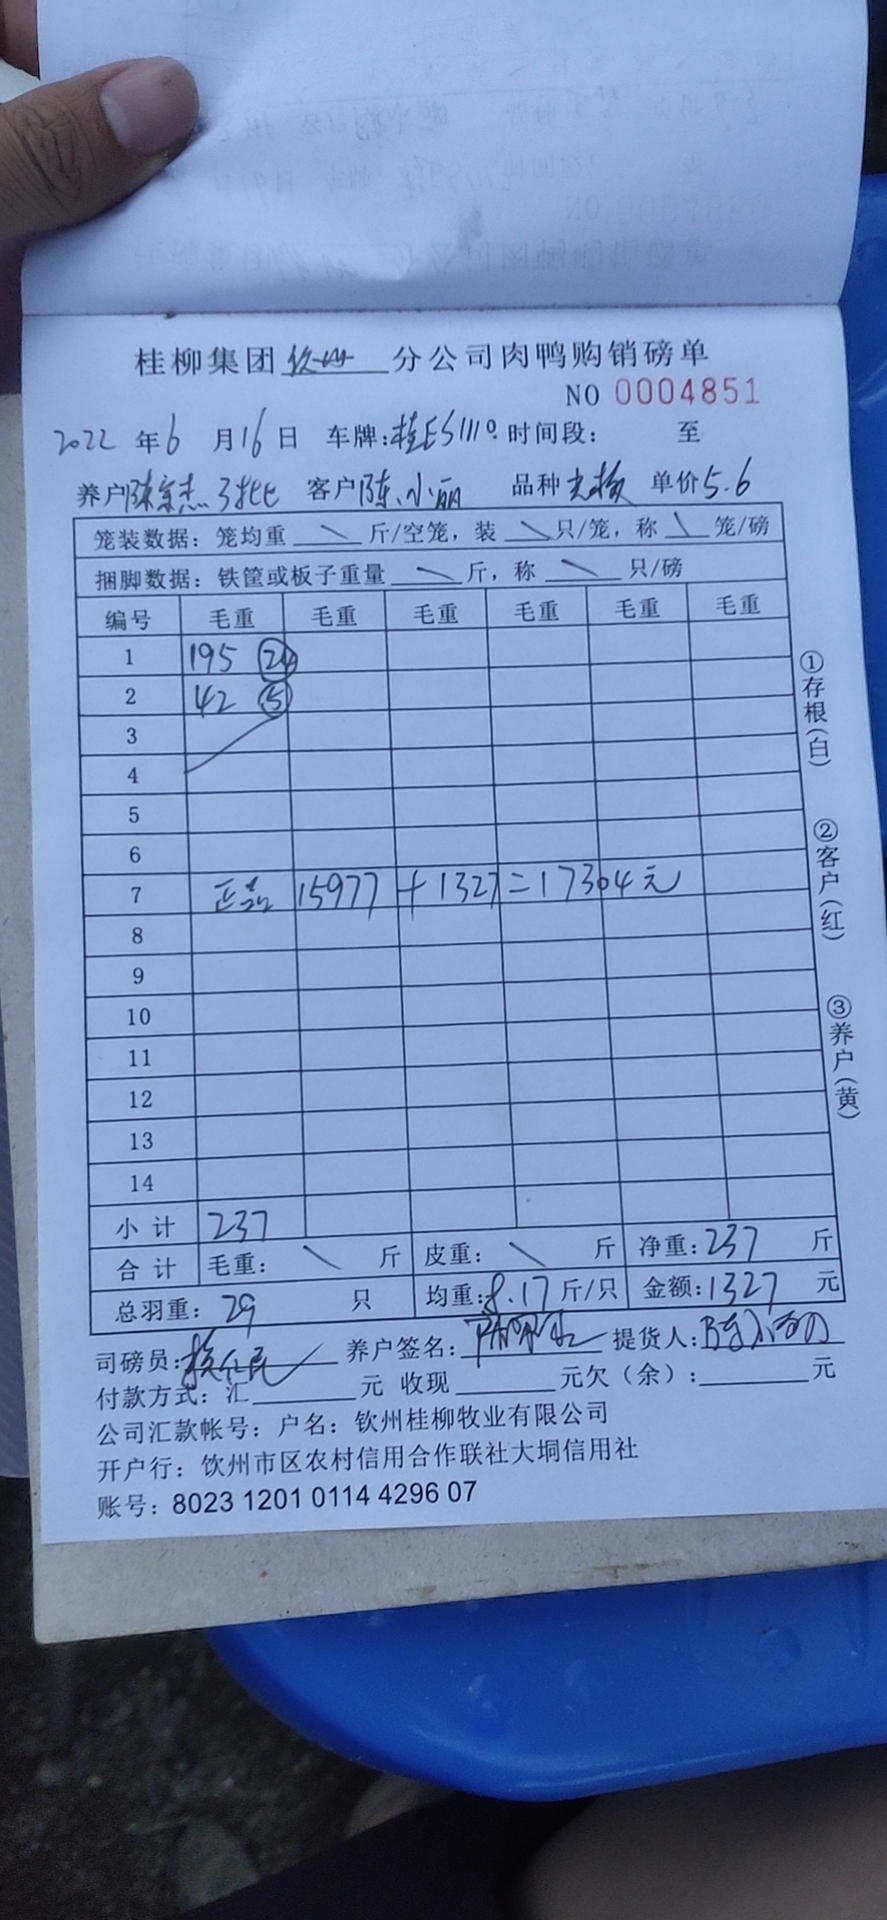 桂柳集团钦州分公司肉鸭购销磅单
NO 0004851
2022年6月16日 车牌:桂ES111 时间段: 至
养户 陈 客户陈小丽 品种 单价5.6
笼装数据：笼均重 \ 斤/空笼，装 \ 只/笼，称 \ 笼/磅
捆脚数据：铁筐或板子重量 \ 斤，称 \ 只/磅
编号 毛重 毛重 毛重 毛重 毛重 毛重
1 195 24
2 42 5
3
4
5
6
7 正品 15977+1327=17304元
8
9
10
11
12
13
14
小计 237
合计 毛重： \ 斤 皮重： \ 斤 净重：237 斤
总羽重：29 只 均重：8.17斤/只 金额：1327 元
司磅员： 养户签名： 提货人：陈小丽
付款方式：汇 元 收现 元欠（余）： 元
公司汇款帐号：户名：钦州桂柳牧业有限公司
开户行：钦州市区农村信用合作联社大垌信用社
账号：8023 1201 0114 4296 07
①存根（白） ②客户（红） ③养户（黄）